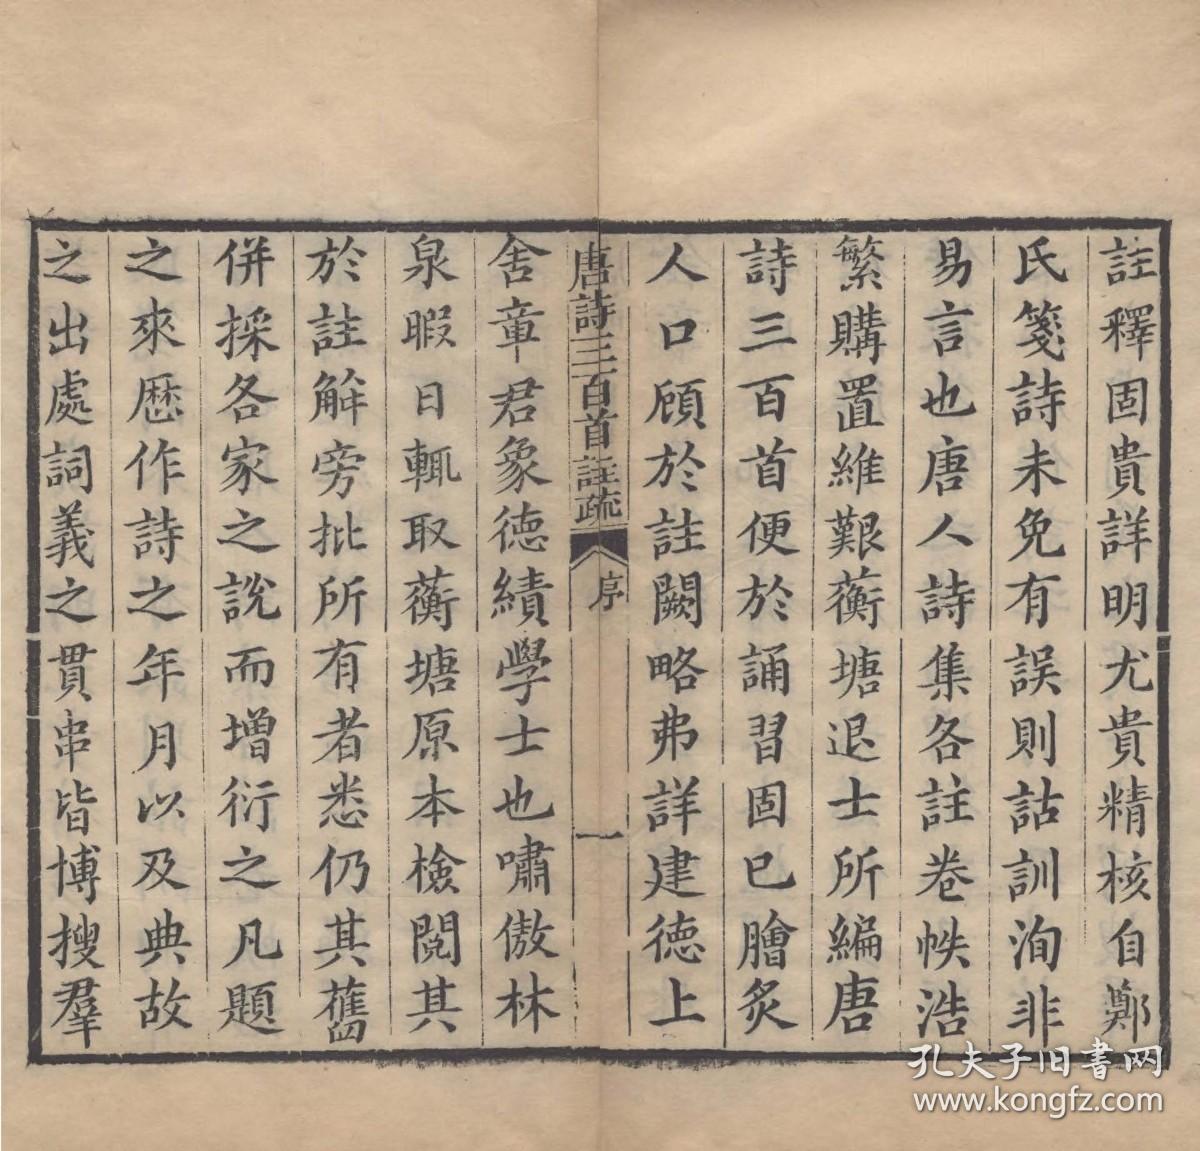 註釋固貴詳明尤貴精核自鄭
氏箋詩未免有誤則詁訓洵非
易言也唐人詩集各註卷帙浩
繁購置維艱蘅塘退士所編唐
詩三百首便於誦習固已膾炙
人口顧於註闕略弗詳建德上
唐詩三百首註疏
序
一
舍章君象德績學士也嘯傲林
泉暇日輒取蘅塘原本檢閱其
於註解旁批所有者悉仍其舊
併採各家之說而增衍之凡題
之來歷作詩之年月以及典故
之出處詞義之貫串皆博搜羣
孔夫子旧书网
www.kongfz.com